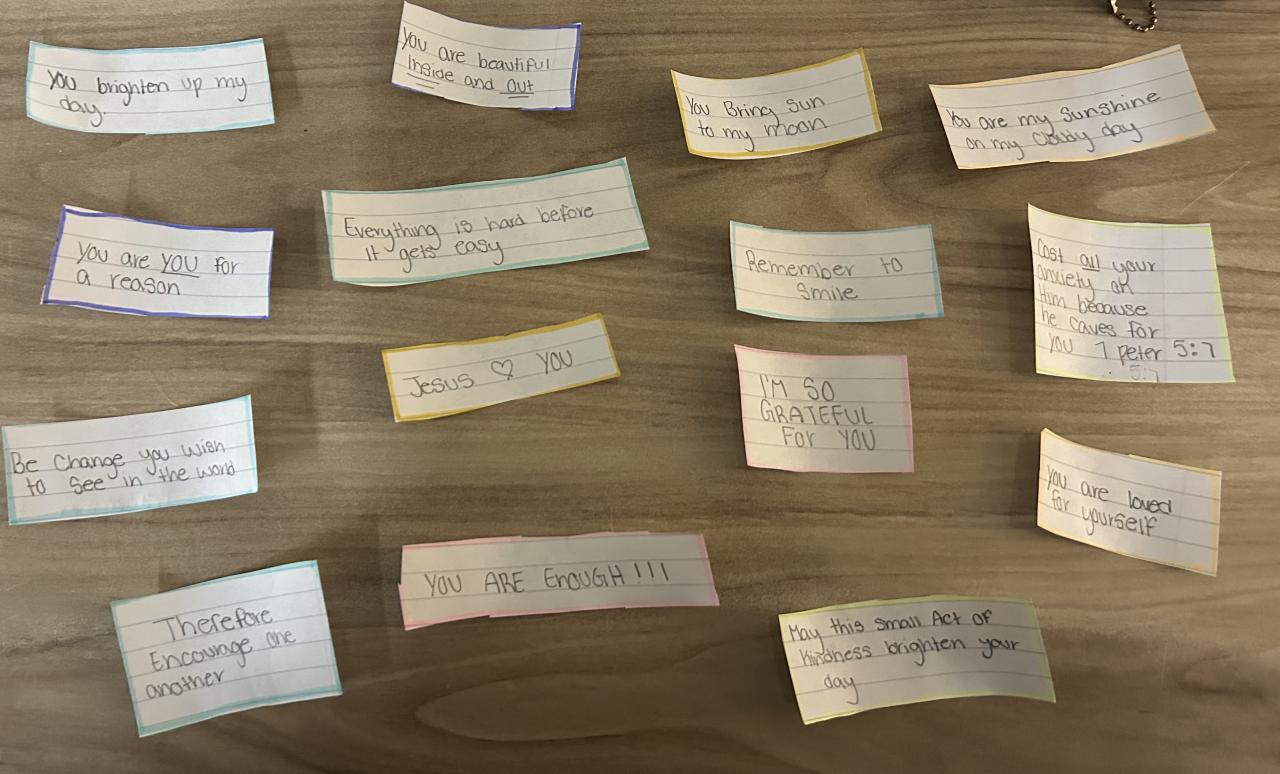 You brighten up my
day.
You are beautiful
Inside and Out
You Bring Sun
to my moon
You are my Sunshine
on my Cloudy day
You are YOU for
a reason
Everything is hard before
It gets easy
Remember to
Smile
Cast all your
anxiety on
Him because
he cares for
you 1 peter 5:7
5:7
Jesus ♡ YOU
I'M SO
GRATEFUL
FOR YOU
Be Change you Wish
to See in the world
You are loved
for yourself
YOU ARE ENOUGH!!!
Therefore
Encourage one
another
May this small Act of
kindness brighten your
day